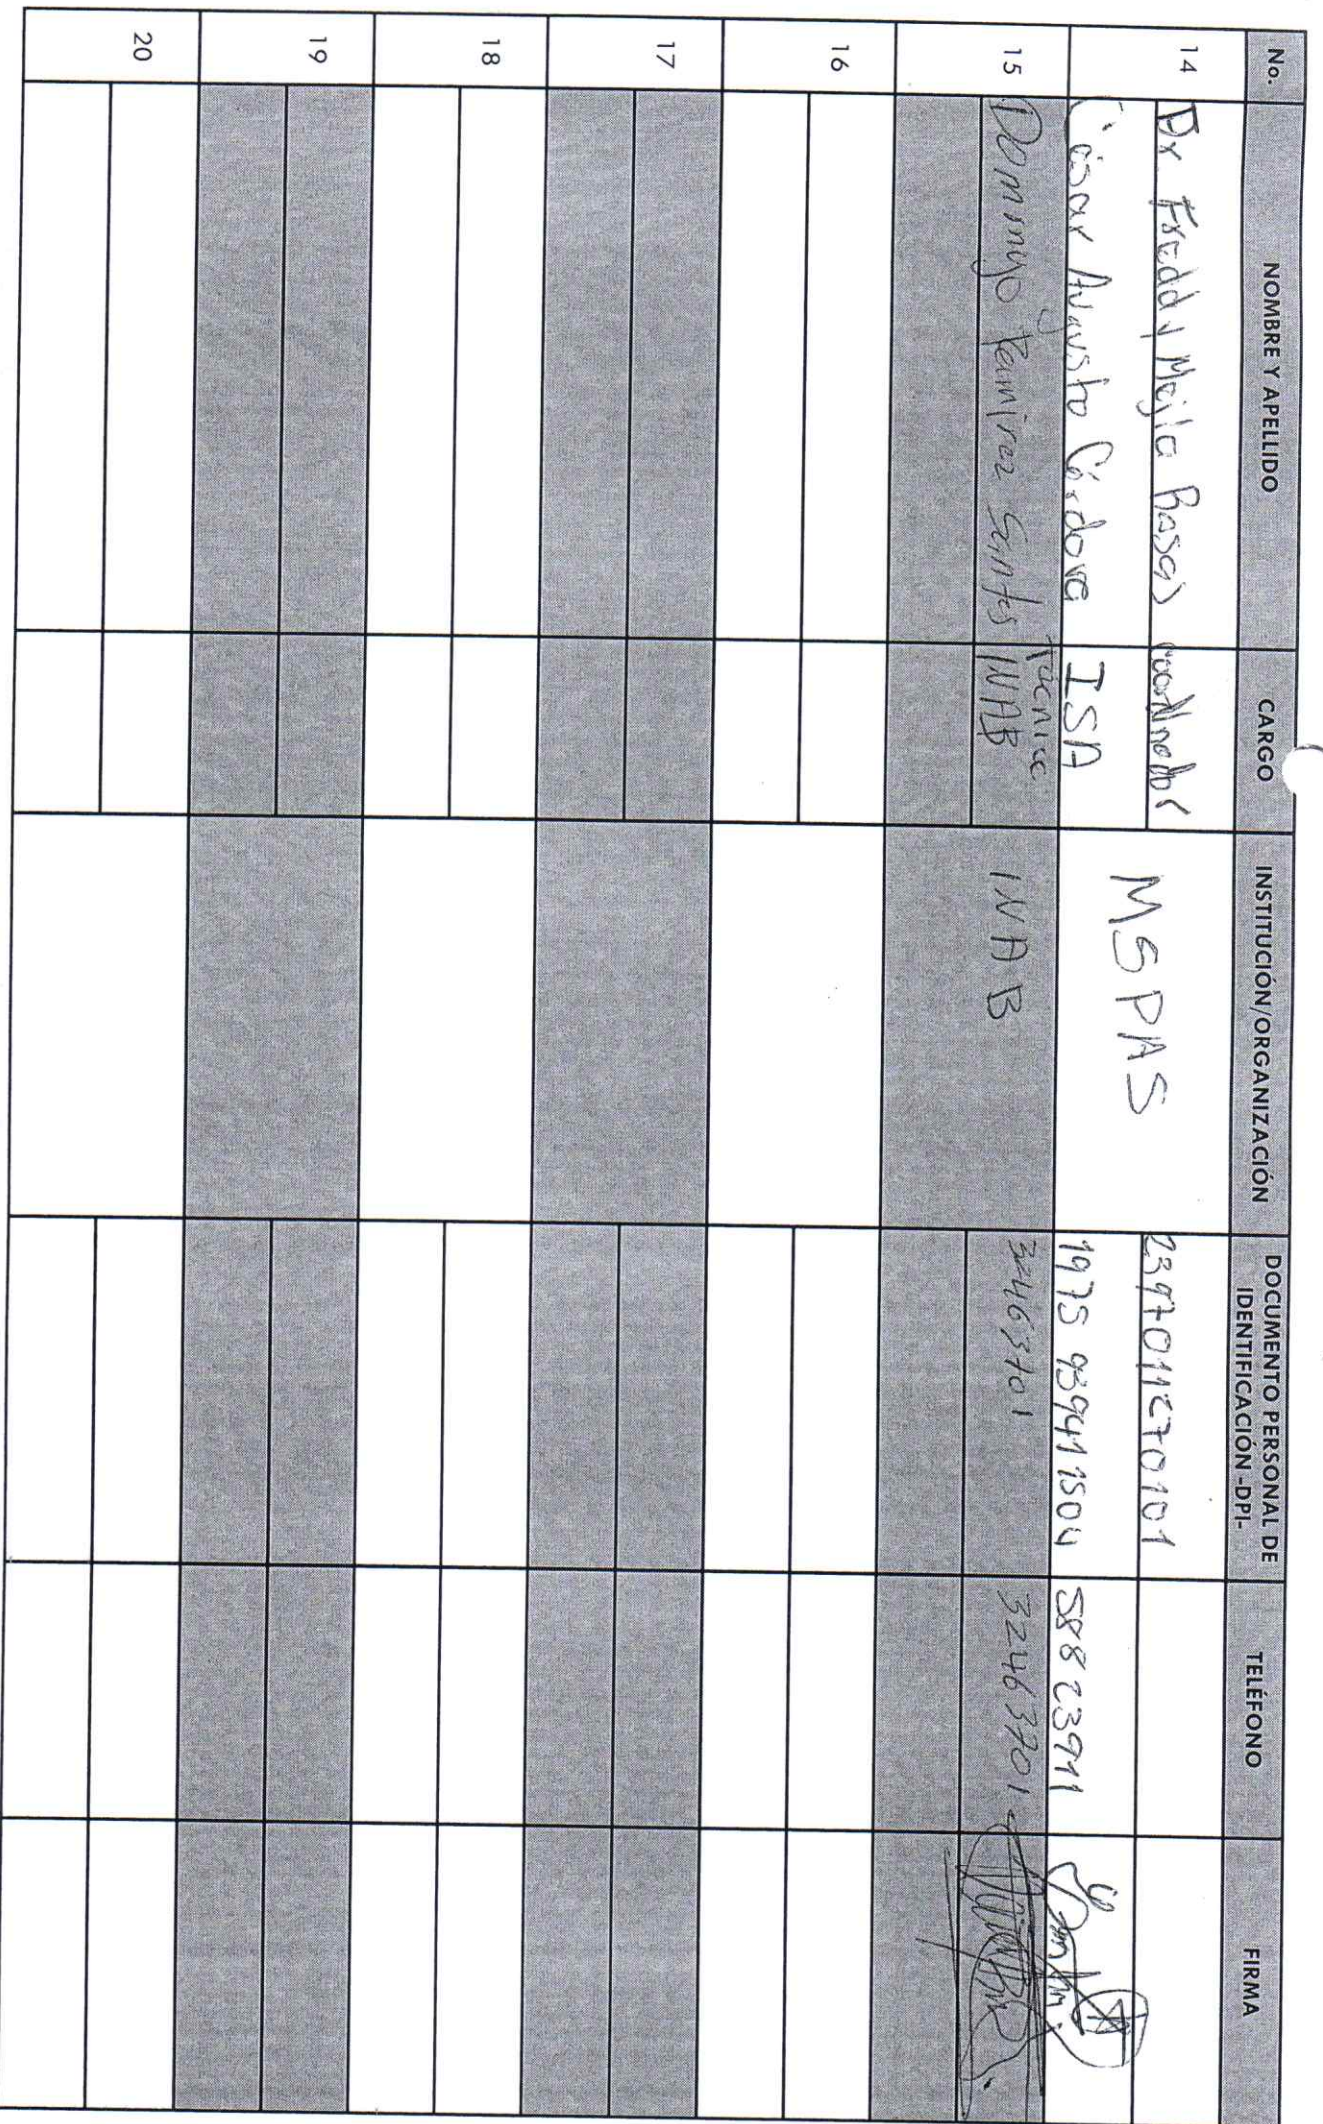 No. NOMBRE Y APELLIDO CARGO INSTITUCIÓN/ORGANIZACIÓN DOCUMENTO PERSONAL DE IDENTIFICACIÓN -DPI- TELÉFONO FIRMA
14 Dr Freddy Mejía Rosas coordinador MSPAS
César Augusto Córdova ISA 1975 93941 1504 58823911
15 Domingo Ramirez Santos Técnico INAB INAB 32463701 32463701
16
17
18
19
20